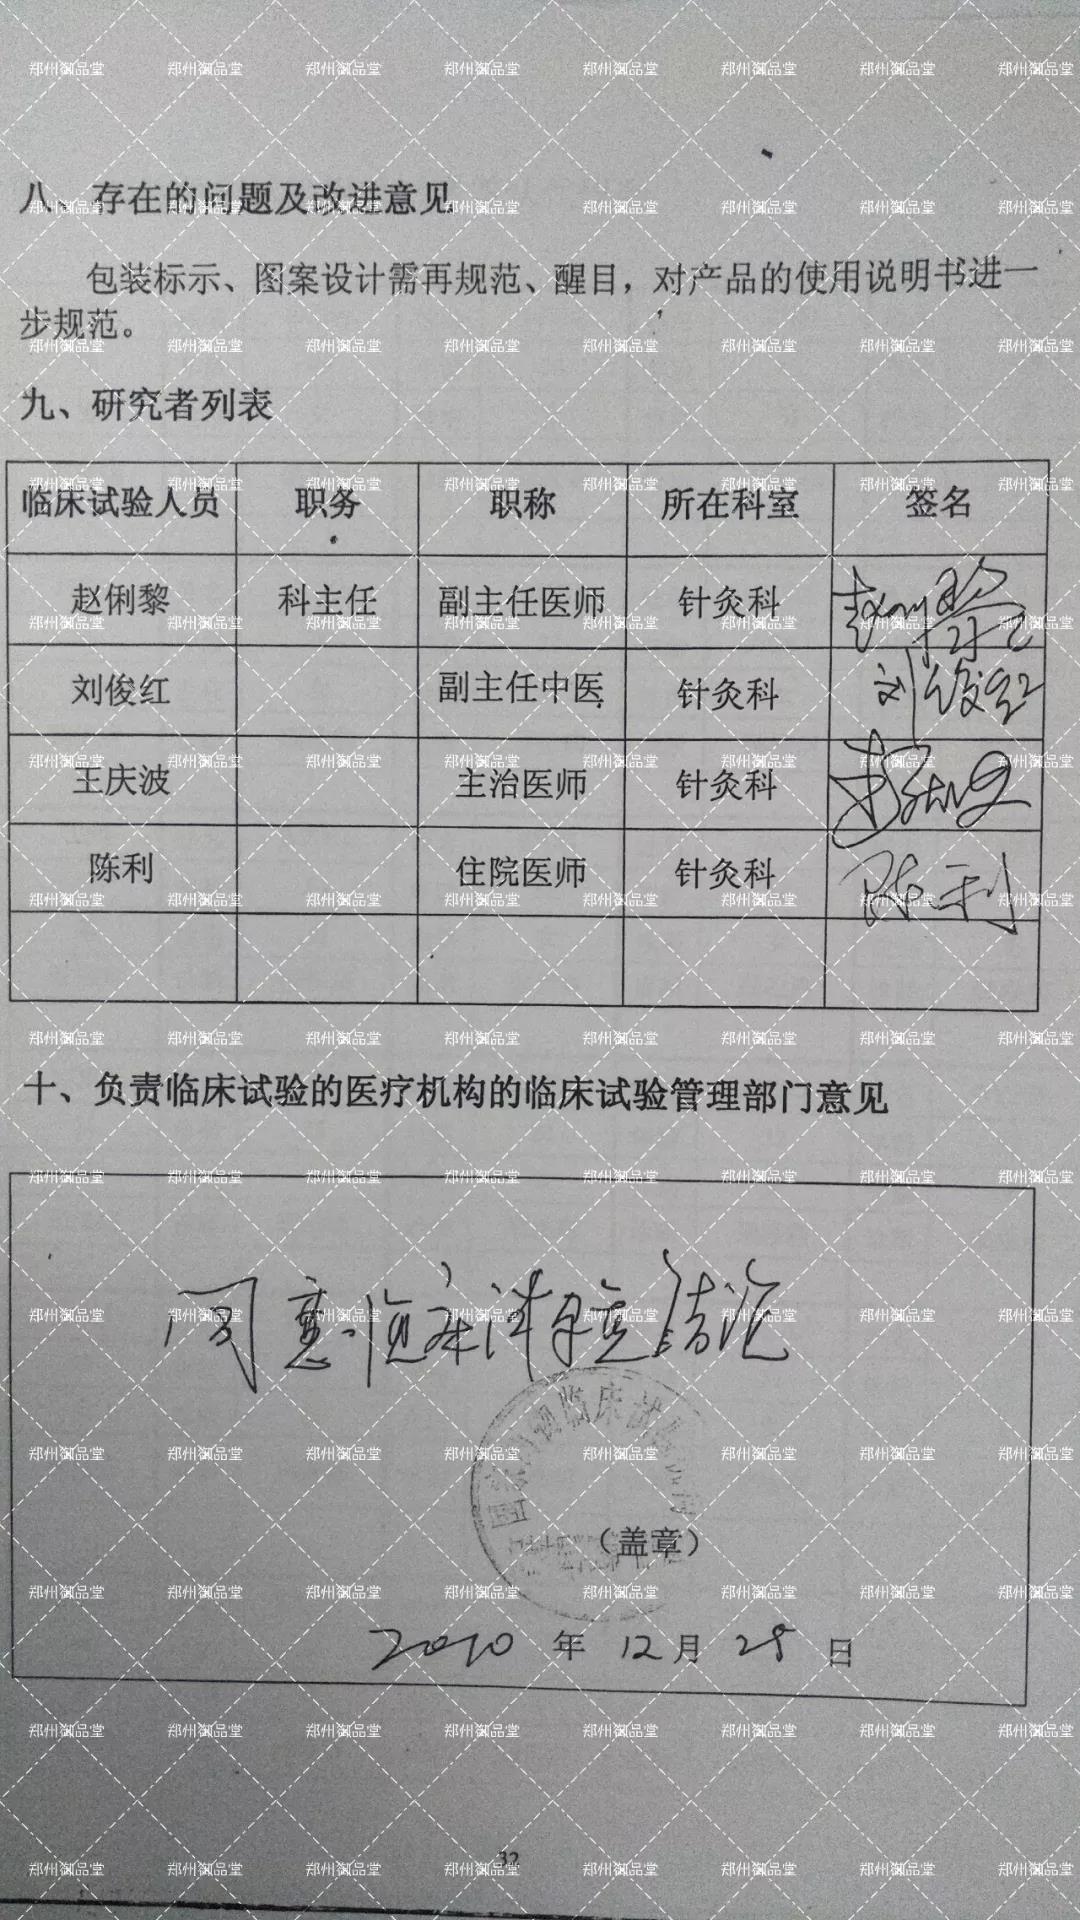 八、存在的问题及改进意见
包装标示、图案设计需再规范、醒目，对产品的使用说明书进一
步规范。
九、研究者列表
临床试验人员 职务 职称 所在科室 签名
赵俐黎 科主任 副主任医师 针灸科 赵俐黎
刘俊红 副主任中医 针灸科 刘俊红
王庆波 主治医师 针灸科
陈利 住院医师 针灸科 陈利
十、负责临床试验的医疗机构的临床试验管理部门意见
同意临床课题结论
国家药物临床试验机构
（盖章）
2010 年 12 月 28 日
32
郑州御品堂